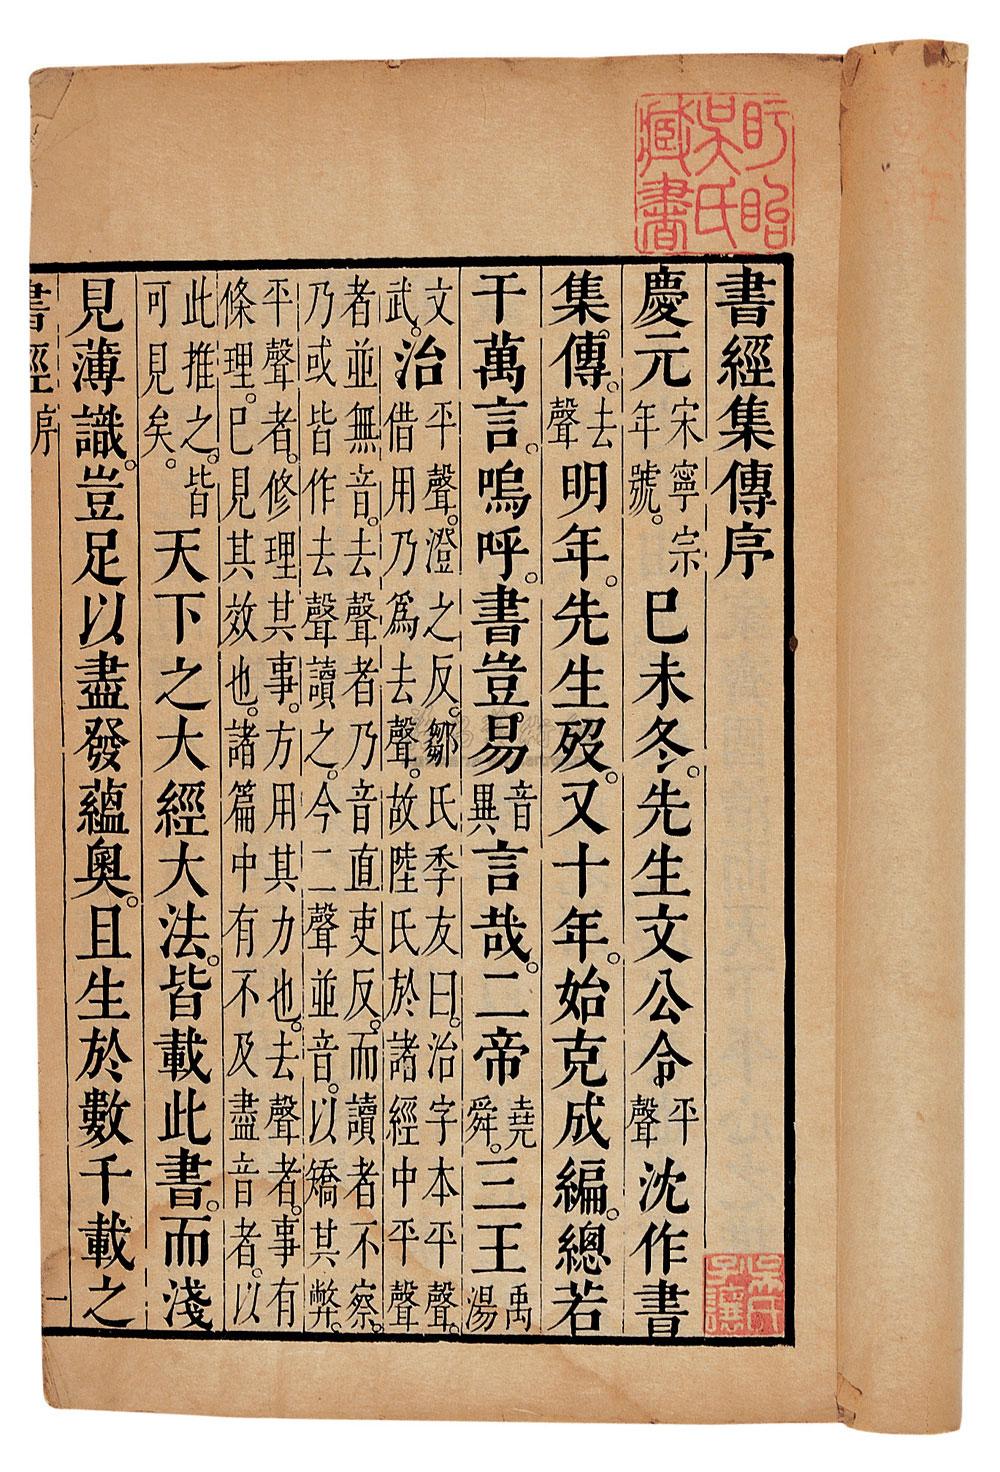 盱眙吳氏藏書
書經集傳序
吳氏子讓
慶元宋寧宗年號。巳未冬。先生文公令平聲沈作書
集傳。去聲明年。先生歿。又十年。始克成編。總若
干萬言。嗚呼。書豈易音異言哉。二帝堯舜。三王禹湯
文武。治平聲。澄之反。鄒氏季友曰。治字本平聲。借用乃爲去聲。故陸氏於諸經中平聲
者並無音。去聲者乃音直吏反。而讀者不察。乃或皆作去聲讀之。今二聲並音。以矯其弊。
平聲者。修理其事。方用其力也。去聲者。事有條理。巳見其效也。諸篇中有不及盡音者。以
此推之。皆可見矣。天下之大經大法。皆載此書。而淺
見薄識。豈足以盡發蘊奧。且生於數千載之
書經序 一